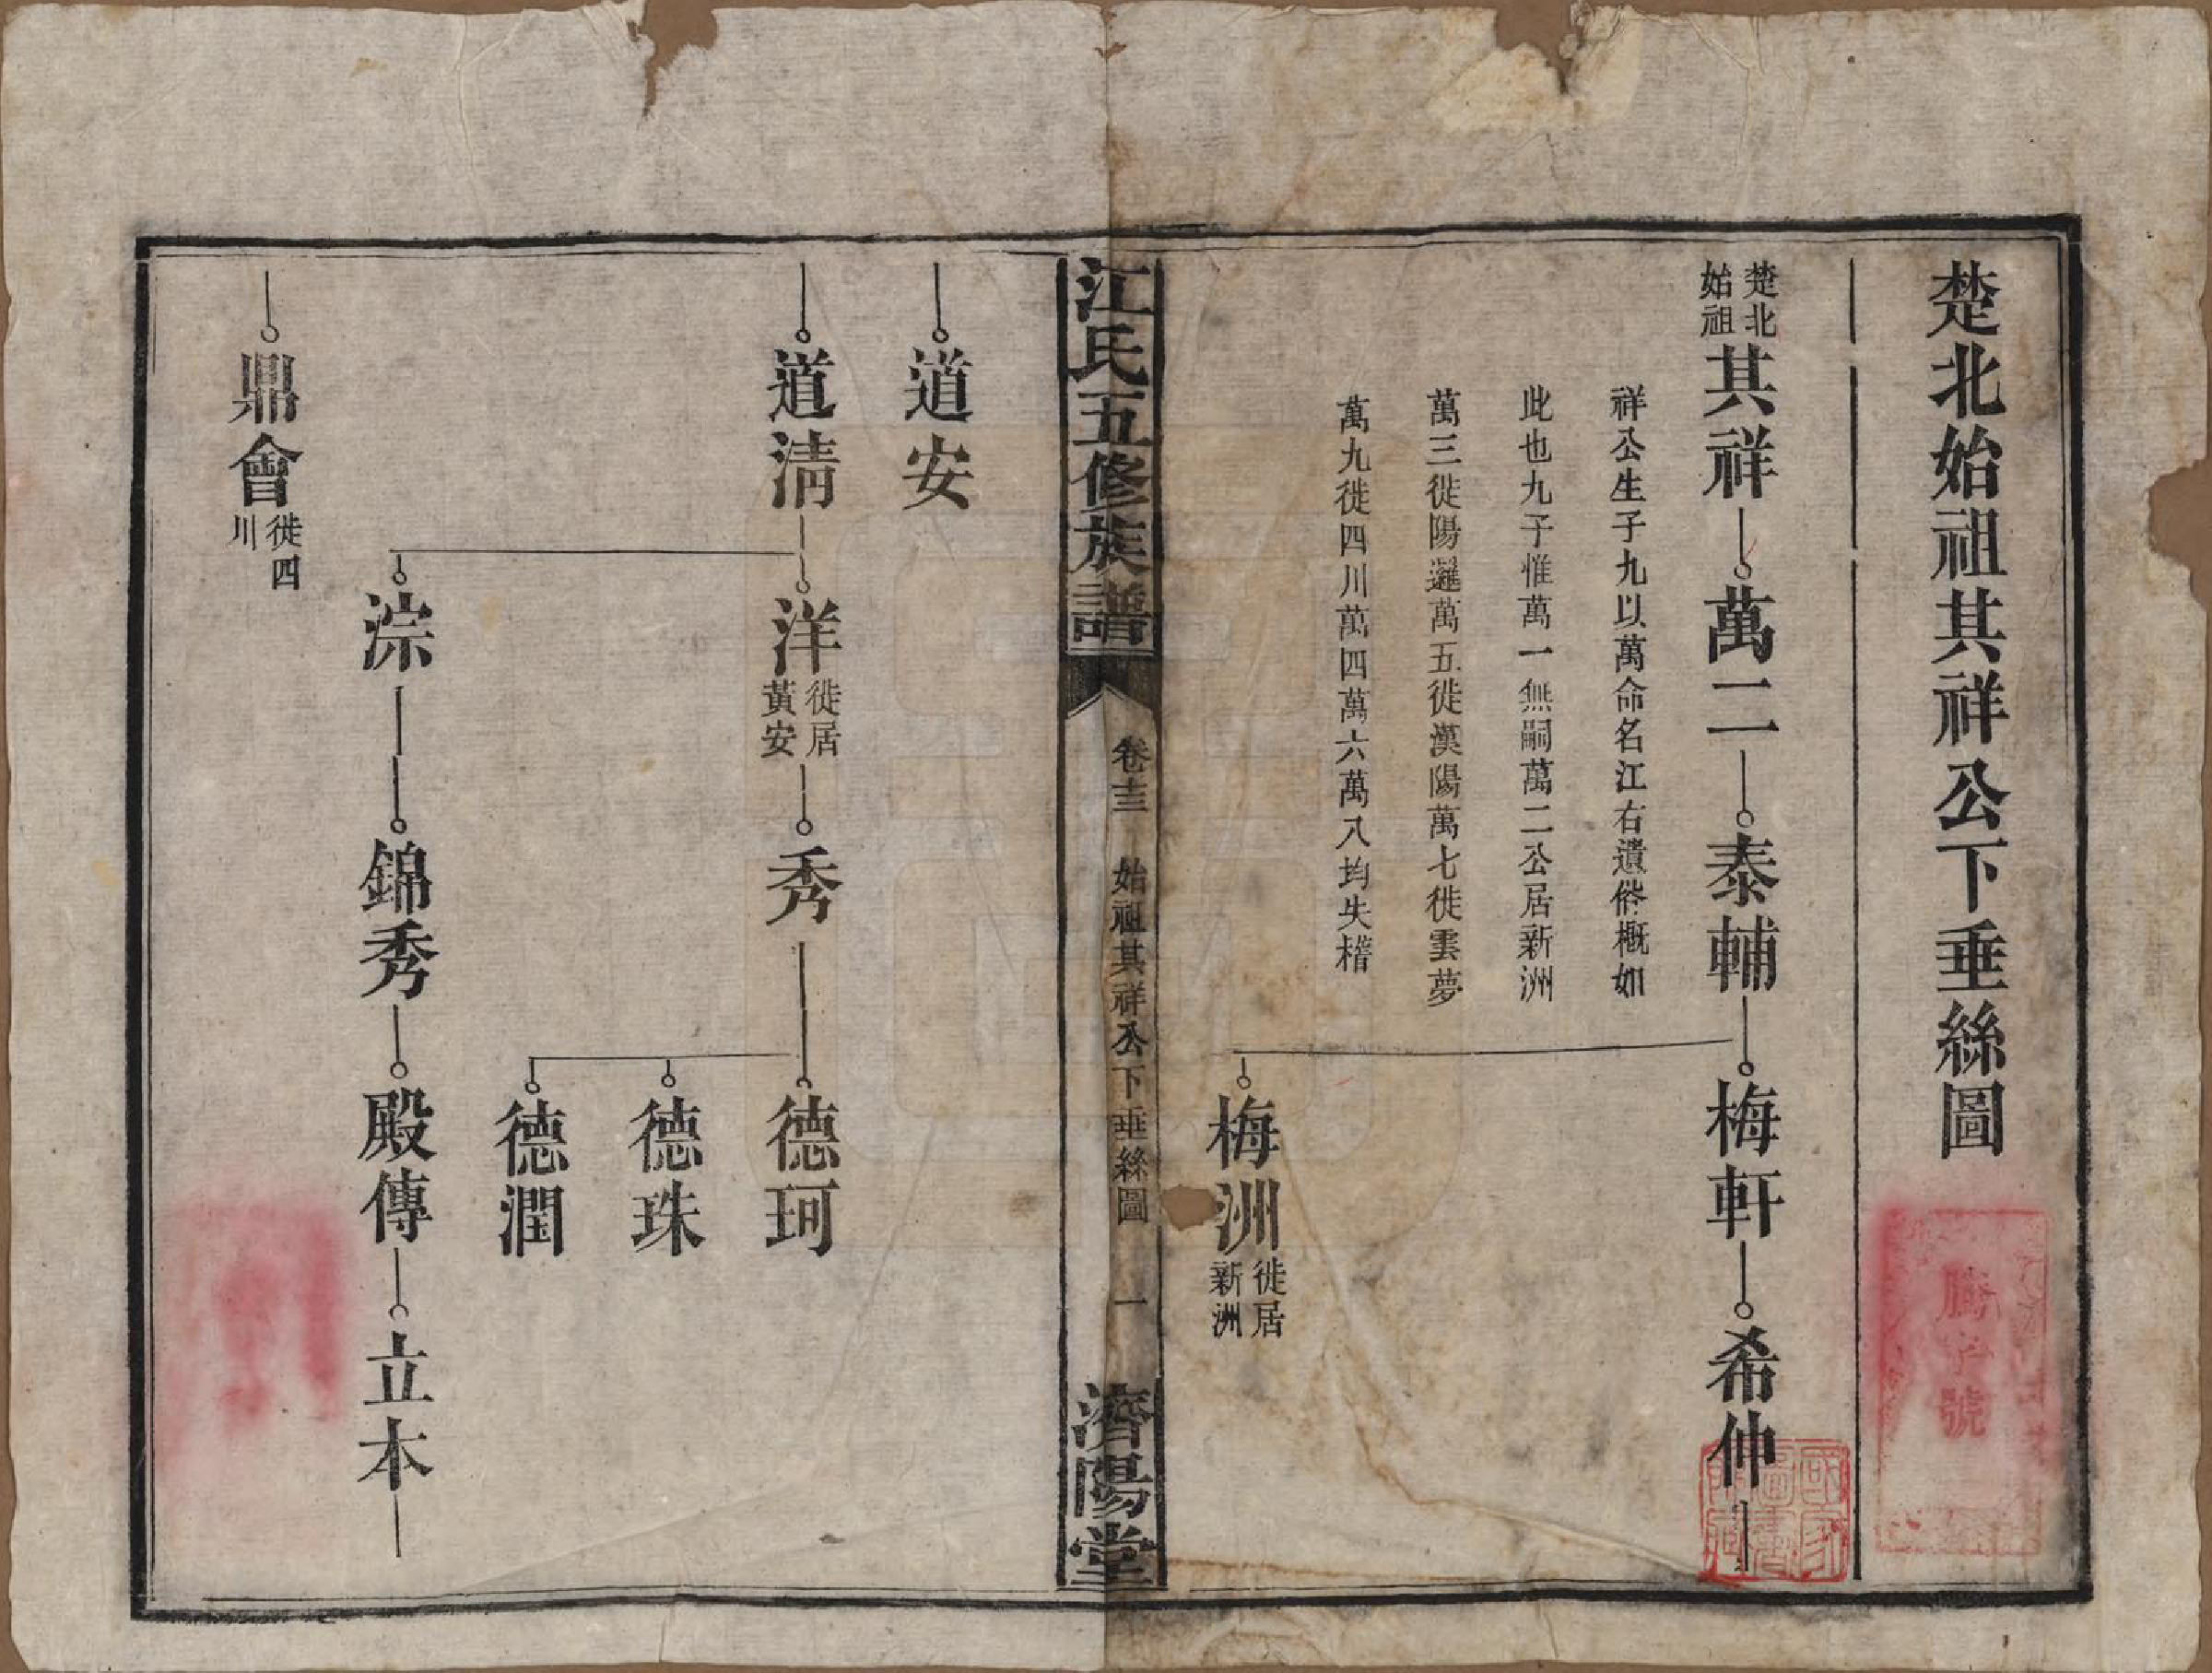 楚北始祖其祥公下垂絲圖
楚北始祖
其祥
萬二
泰輔
梅軒
希仲
祥公生子九以萬命名江右遺俗概如
此也九子惟萬一無嗣萬二公居新洲
萬三徙陽邏萬五徙漢陽萬七徙雲夢
萬九徙四川萬四萬六萬八均失稽
梅洲
徙居新洲
江氏五修族譜
卷十三
始祖其祥公下垂絲圖
一
濟陽堂
道安
道淸
洋
徙居黃安
秀
德珂
德珠
德潤
淙
錦秀
殿傳
立本
鼎會
徙四川
號
國家圖書館藏